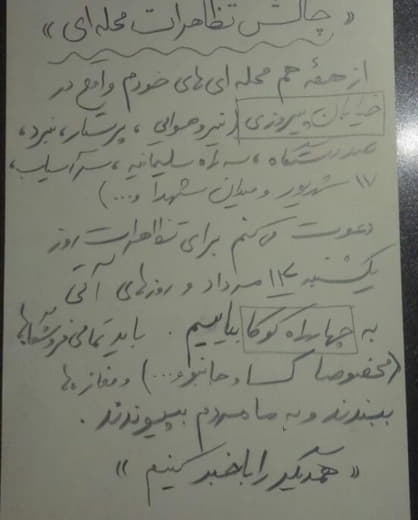 « چالش تظاهرات محله‌ای »
از همهٔ هم محله‌ای‌های خودم واقع در
خیابان پیروزی (نیروهوایی، پرستار، نبرد،
سه راه سلیمانیه، سرآسیاب،
۱۷ شهریور و میدان شهدا و...)
دعوت می‌کنم برای تظاهرات روز
یکشنبه ۱۴ مرداد و روزهای آتی
به چهارراه کوکا بیاییم. باید تمامی فروشگاه‌ها
(مخصوصا و جانبو و...) و مغازه‌ها
ببندند و به ما مردم بپیوندند.
« همدیگر را باخبر کنیم »